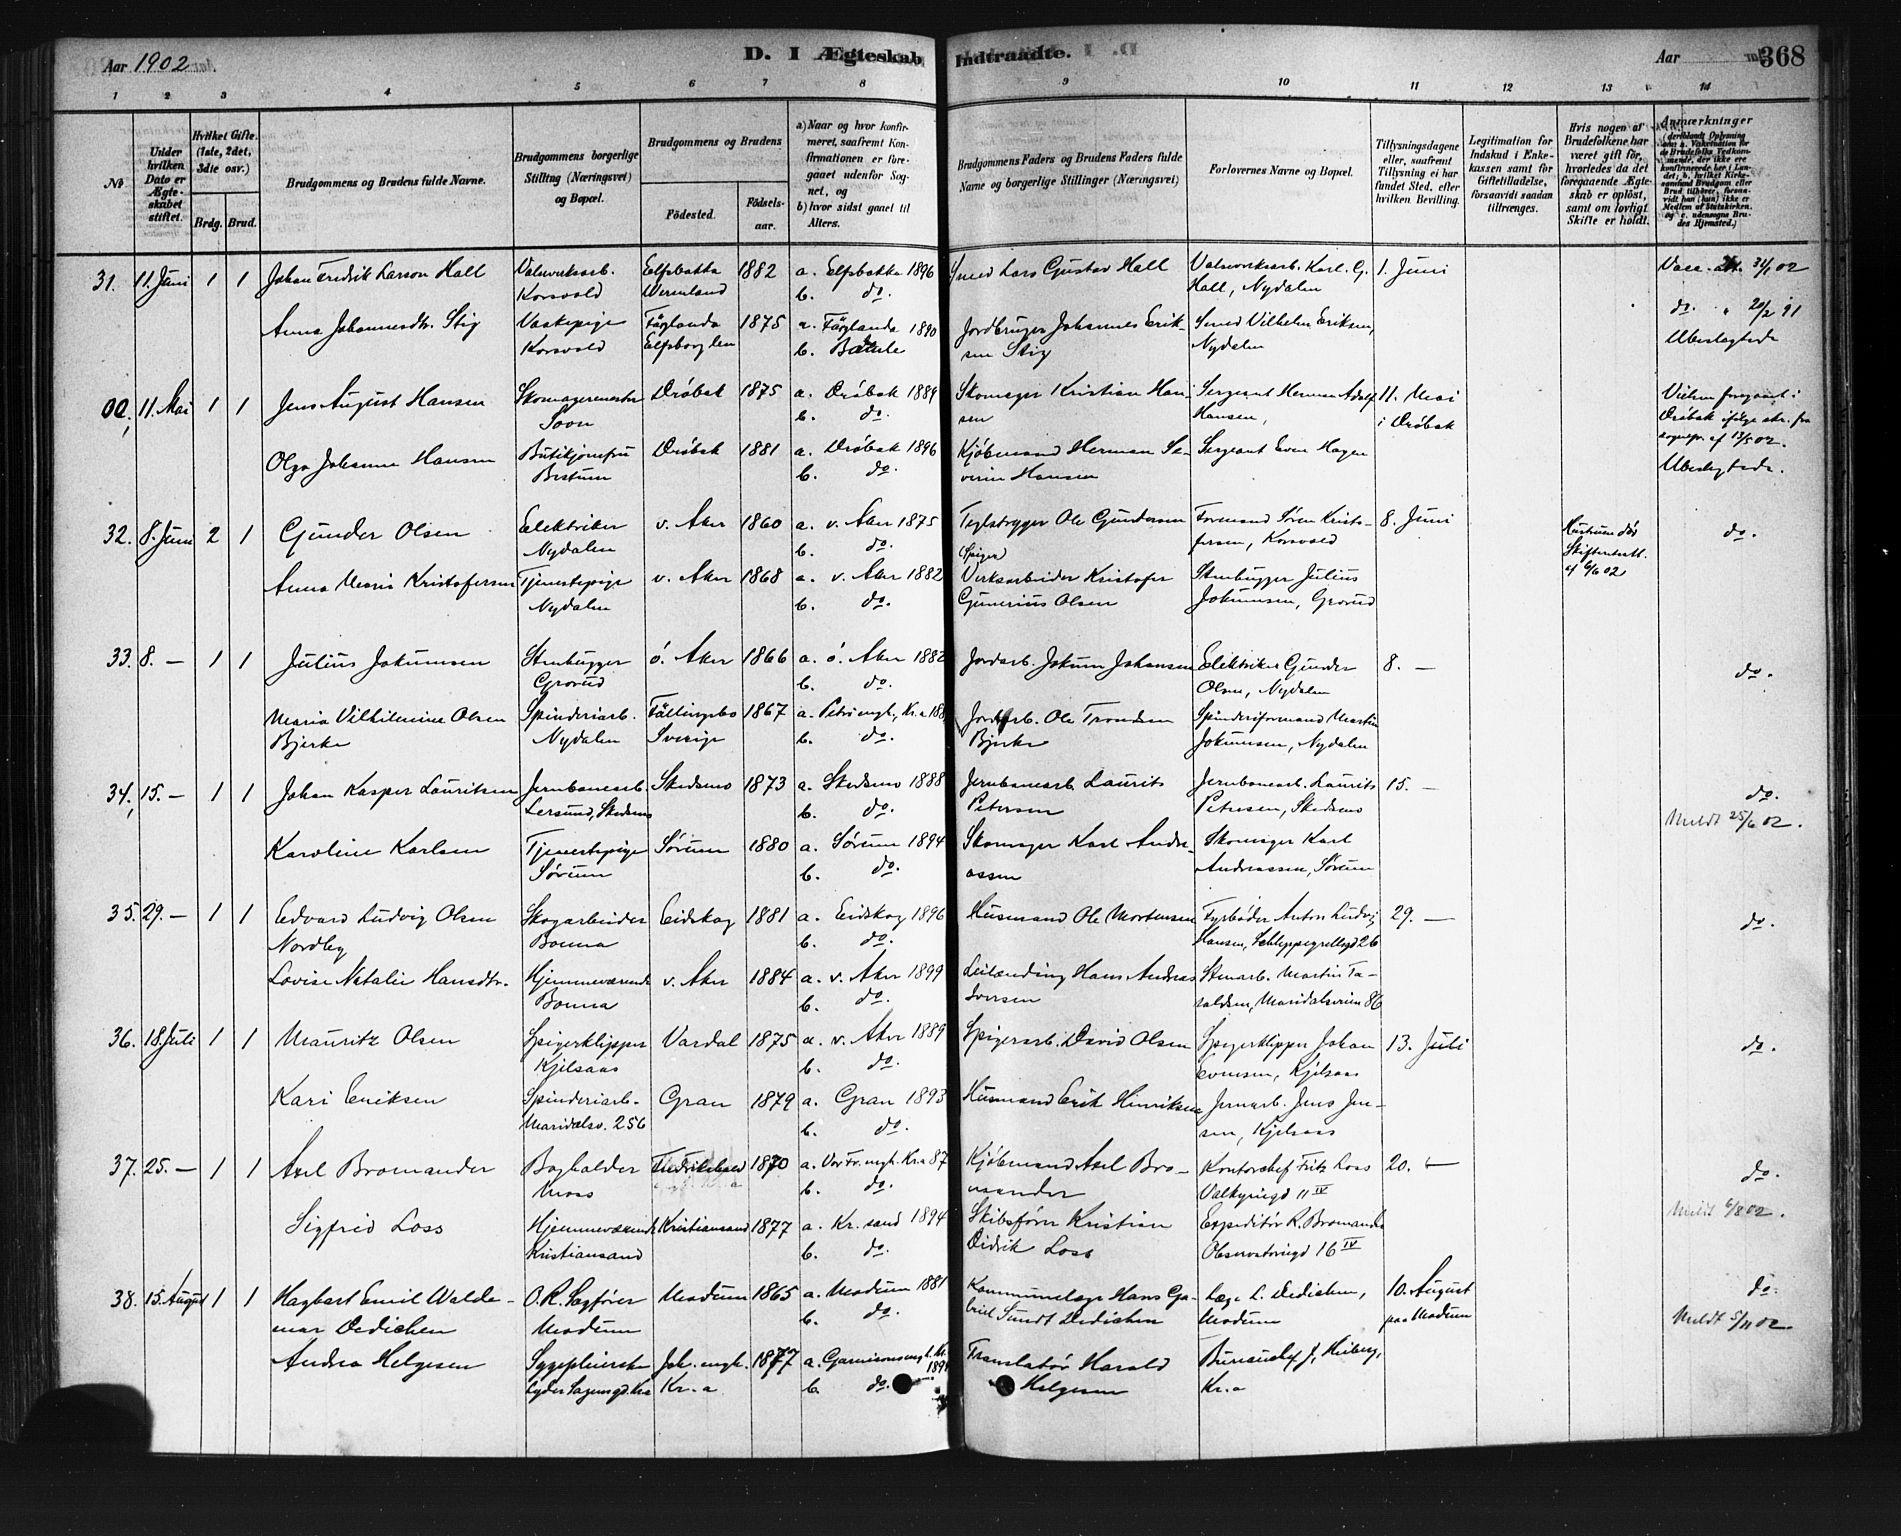 Aar 1902.
D. I Ægteskab Indtraadte.
Aar
368
1 2 3 4 5 6 7 8 9 10 11 12 13 14
No
Under hvilken Dato er Ægteskabet stiftet.
Hvilket Gifte. (1ste, 2det, 3die osv.)
Brdg. Brud.
Brudgommens og Brudens fulde Navne.
Brudgommens borgerlige Stilling (Næringsvei) og Bopæl.
Brudgommens og Brudens
Födested.
Födselsaar.
a) Naar og hvor konfirmeret, saafremt Konfirmationen er foregaaet udenfor Sognet, og
b) hvor sidst gaaet til Alters.
Brudgommens Faders og Brudens Faders fulde Navne og borgerlige Stillinger (Næringsvei)
Forlovernes Navne og Bopæl.
Tillysningsdagene eller, saafremt Tillysning ei har fundet Sted, efter hvilken Bevilling.
Legitimation for Indskud i Enkekassen samt for Giftetilladelse, forsaavidt saadan tiltrænges.
Hvis nogen af Brudefolkene har været gift för, hvorledes da det foregaaende Ægteskab er oplöst, samt om lovligt Skifte er holdt.
Anmærkninger
31. 11 Juni 1 1 Johan Fredrik Larson Hall Valseverksarb. Korsvold 1882 a. Elfsbatka 1896 b. do. Smed Lars Gustav Hall Valseverksarb. Karl. G. Hall, Nydalen 1. Juni
Anna Johannesdtr. Stig Korsvold 1875 a. Färglanda 1890 b. Jordbruger Johannes Eriksen Stig Smed Vilhelm Eriksen, Nydalen do. 20/2 91 Ubeslægtede
00, 11 Mai 1 1 Jens August Hansen Skomagermester Soon Drøbak 1875 a. Drøbak 1889 b. do. Skomager Kristian Hansen Sergeant Herman Adolf Hansen, 11. Mai i Drøbak Vielsen foregaaet i Drøbak ifølge skr. fra sognepr. af 13/5 02.
Olga Johanne Hansen Bestum Drøbak 1881 a. Drøbak 1896 b. do. Kjøbmand Herman Severin Hansen Sergeant Even Hagen Ubeslægtede.
32. 8. Juni 2 1 Gunder Olsen Elektriker Nydalen v. Aker 1860 a. v. Aker 1875 b. do. Teglstryger Ole Gundersen Formand Søren Kristofersen, Korsvold 8. Juni Hustruen død Skifteattest af 6/6 02 do.
Anna Maria Kristofersen Tjenestepige Nydalen v. Aker 1868 a. v. Aker 1882 b. do. Verksarbeider Kristofer Gunerius Olsen Stenhugger Julius Jokumsen, Grorud
33. 8. — 1 1 Julius Jokumsen Stenhugger Grorud ø. Aker 1866 a. ø. Aker 1882 b. do. Jordarb. Jokum Johansen Elektriker Gunder Olsen, Nydalen 8. — do.
Maria Vilhelmine Olsen Bjerke Spinderiarb. Nydalen Fällingsbo Sverige 1867 a. Petri mgh., Kr.a b. do. Jordarb. Ole Trondsen Bjerke Spinderiformand Martin Jokumsen, Nydalen
34, 15. — 1 1 Johan Kasper Lauritsen Jernbanearb. Lersund, Skedsmo Skedsmo 1873 a. Skedsmo 1888 b. do. Jernbanearb. Laurits Petersen Jernbanearb. Laurits Petersen, Skedsmo 15. — do. Meldt 25/6 02.
Karoline Karlsen Tjenestepige Sørum Sørum 1880 a. Sørum 1894 b. do. Skomager Karl Andreassen Skomager Karl Andreassen, Sørum
35. 29. — 1 1 Edvard Ludvig Olsen Nordby Skogarbeider Bonna Eidskog 1881 a. Eidskog 1896 b. do. Husmand Ole Mortensen Fyrbøder Anton Ludvig Hansen, Schleppegrellsgd 26 29. — do.
Lovise Natalie Hansdtr. Hjemmeværende Bonna v. Aker 1884 a. v. Aker 1899 b. do. Leilænding Hans Andreas Iversen Stenarb. Martin Taraldsen, Maridalsveien 86
36. 18. Juli 1 1 Mauritz Olsen Spigerklipper Kjelsaas Vardal 1875 a. v. Aker 1889 b. do. Spigerarb. David Olsen Spigerklipper Johan Evensen, Kjelsaas 13. Juli do.
Kari Eriksen Spinderiarb. Maridalsv. 256 Gran 1879 a. Gran 1893 b. do. Husmand Erik Hinriksen Jernarb. Jens Jensen, Kjelsaas
37. 25. — 1 1 Axel Bromander Bogholder Moss Fredrikshald 1870 a. Vor Fr. mgh. Kr.a 87 b. do. Kjøbmand Axel Bromander Kontorchef Fritz Loss Valkyriegd 11 IV 20. — do.
Sigfrid Loss Hjemmeværende Kristiansand Kristiansand 1877 a. Kr.sand 1894 b. do. Skibsfører Kristian Didrik Loss Expeditør R. Bromander Observatoriegd 16 IV Meldt 6/8 02.
38. 15. August 1 1 Hagbart Emil Waldemar Dedichen O.R. Sagfører Modum Modum 1865 a. Modum 1881 b. do. Kommunelæge Hans Gabriel Sundt Dedichen Læge L. Dedichen, Modum 10. August paa Modum do. Meldt 5/11 02.
Andrea Helgesen Sygepleierske Joh. mgh. Kr.a 1877 a. Garnisonsmgh. b. do. Translatør Harald Helgesen Bureauchef J. Heiberg, Kr.a